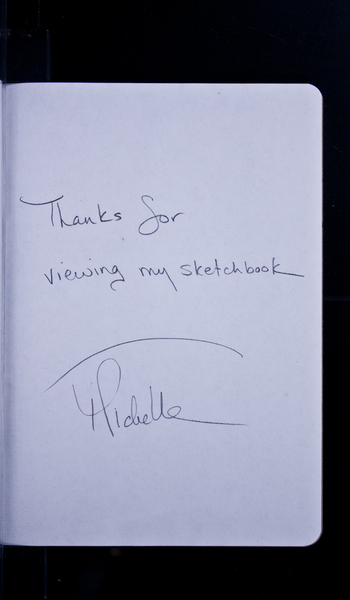 Thanks for
viewing my sketchbook
Michelle